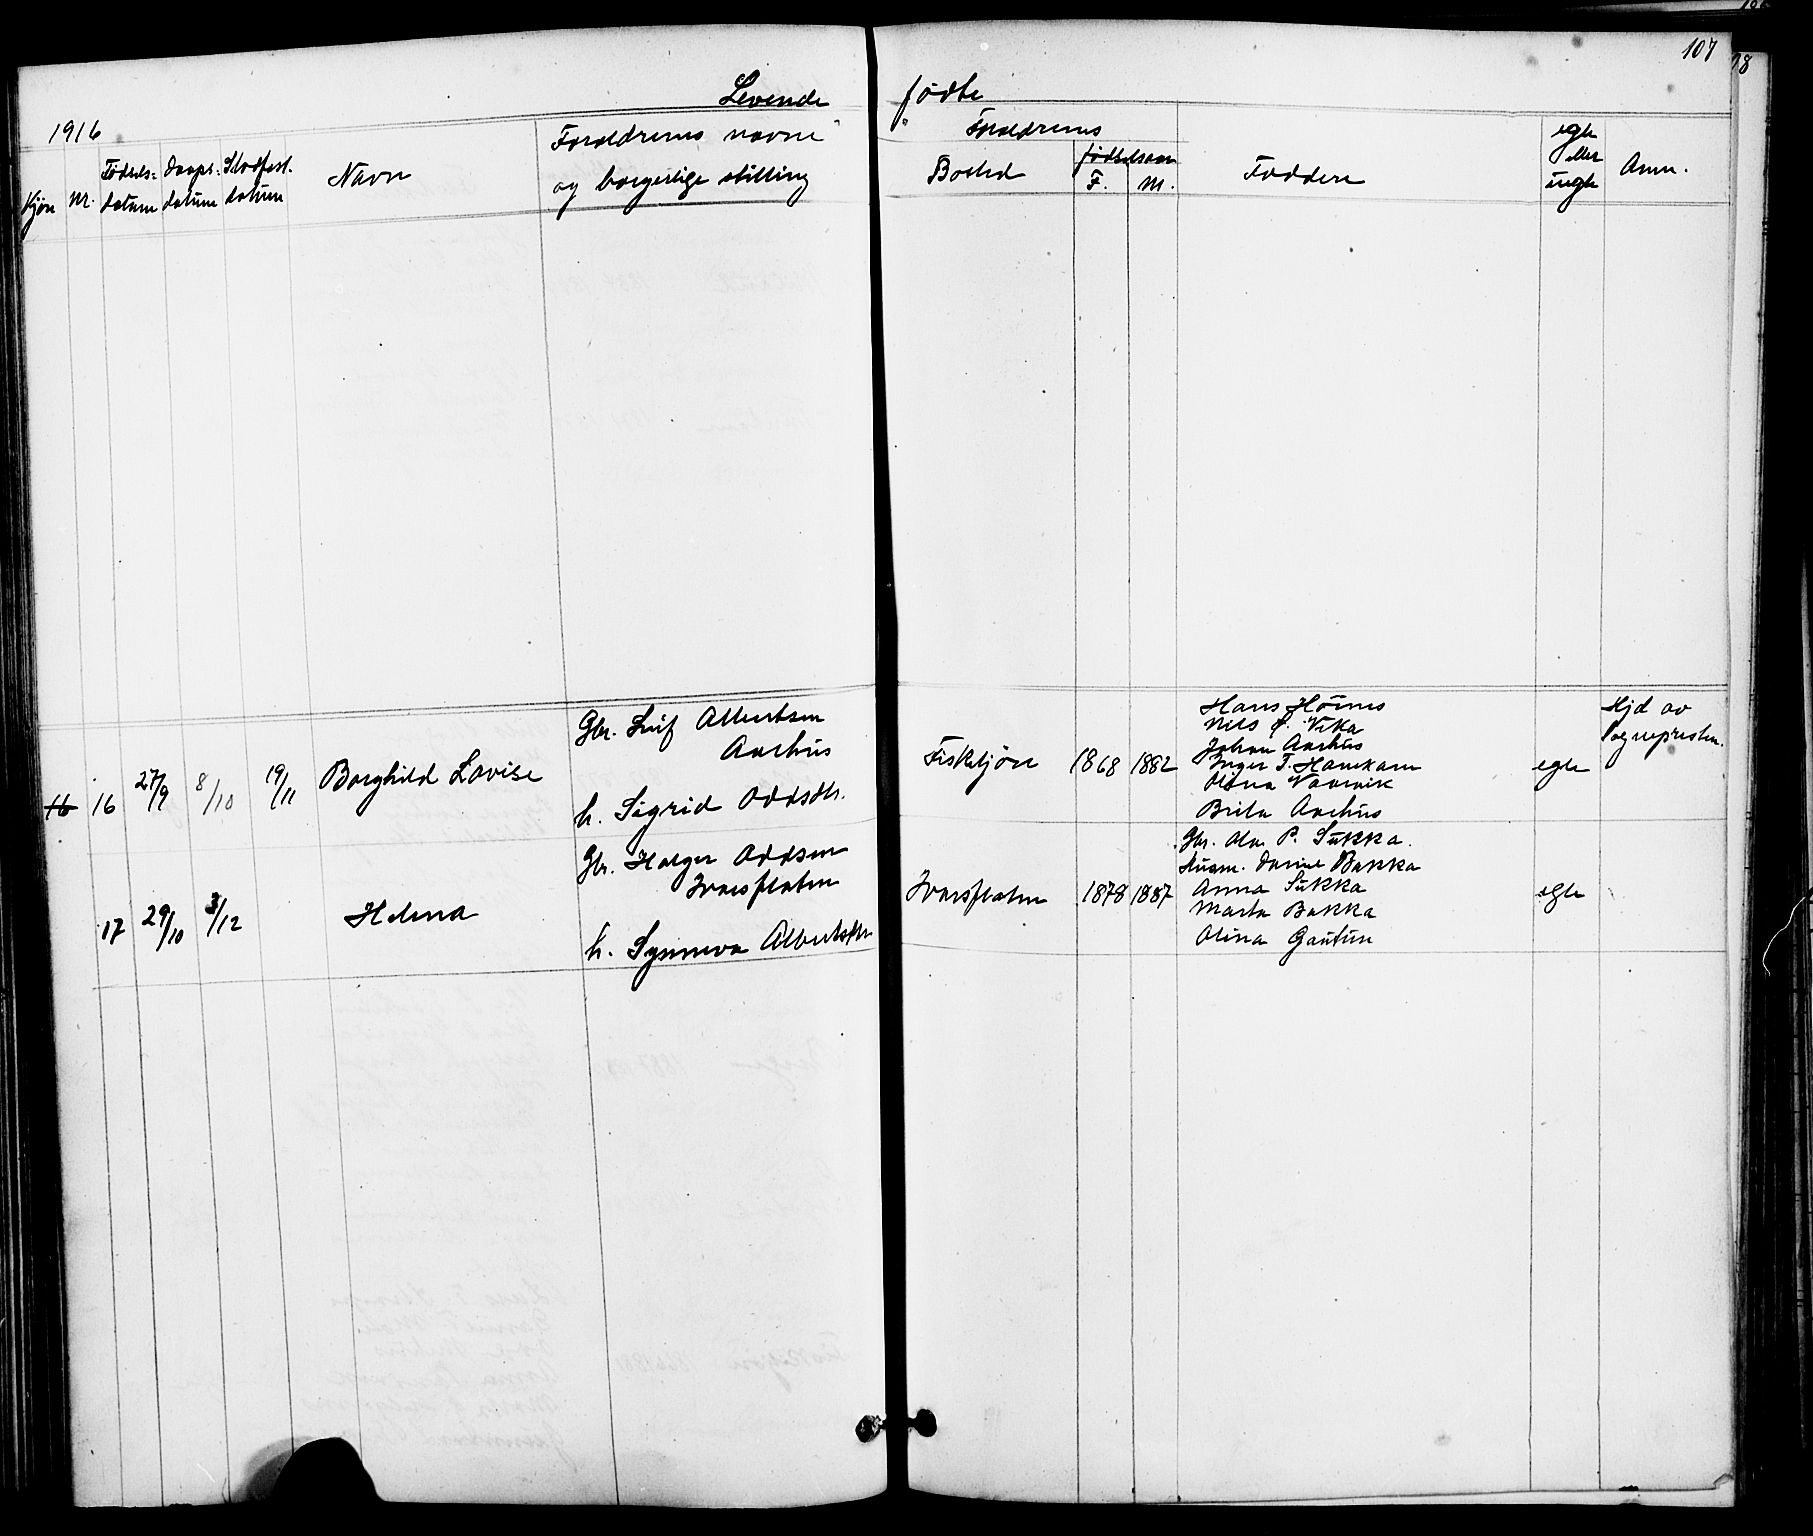 107
Levende fødte
1916
Kjøn
Nr.
Fødsels=
datum
Daaps=
datum
Stadfest.
datum
Navn
Foreldrenes navne
og borgerlige stilling
Foreldrenes
Bosted
fødselsaar
F.
M.
Faddere
egte
eller
uegte
Anm.
16
16
27/9
8/10
19/11
Borghild Lovise
Gbr. Leif Albertsen
Aarhus
h. Sigrid Oddsdtr.
Fiksetjøn
1868
1882
Hans Hornes
Nils Vika
Johan Aarhus
Inger T. Hanekam
Olina Vaarvik
Brita Aarhus
egte
Hjd av
sognepresten.
17
29/10
3/12
Helena
Gbr. Holger Oddsen
Ivarsflaten
h. Synneva Albertsdtr
Ivarsflaten
1878
1887
Gbr. Ola P. Sukka.
Husm. Daniel Bakka
Anna Sukka
Marta Bakka
Olina Gautun
egte